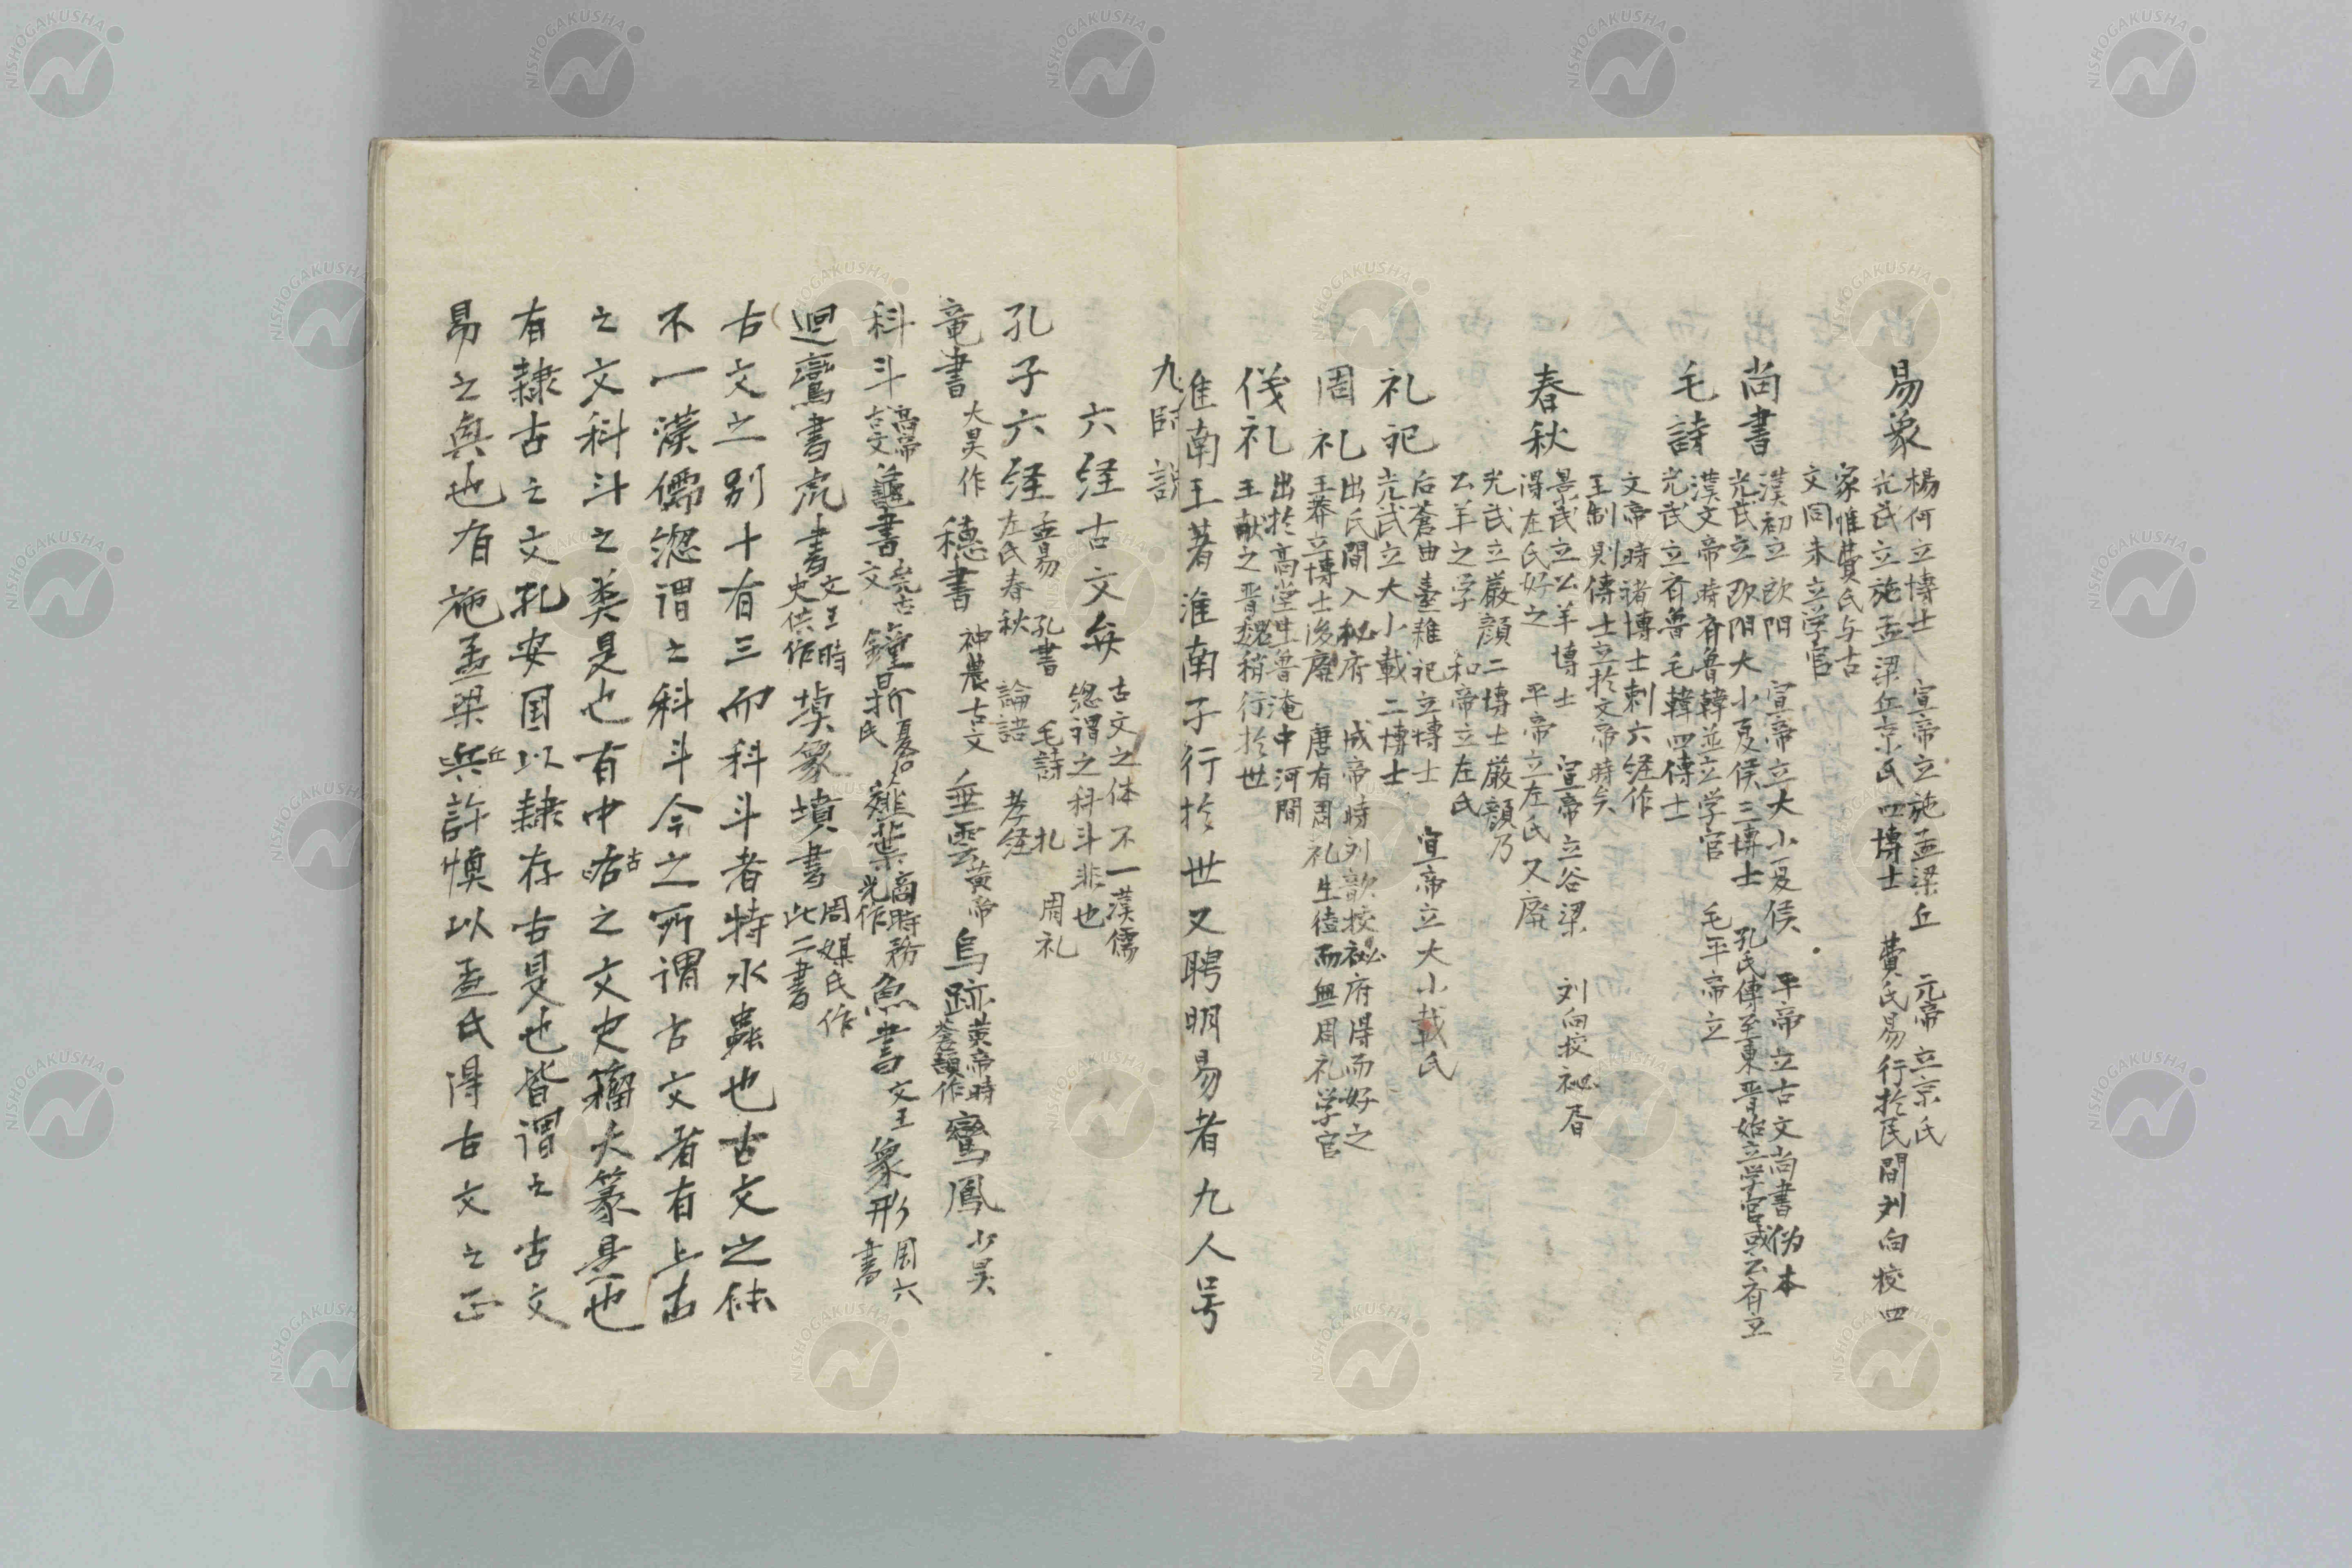 易象
楊何立博士 宣帝立施孟梁丘 元帝立京氏
光武立施孟梁丘京氏四博士 費氏易行於民間刘向校四
家惟費氏与古
文同未立学官
尚書
漢初立欧阳 宣帝立大小夏侯 平帝立古文尚書伪本
光武立欧阳大小夏侯三博士 孔氏傳至東晋始立学官或云有立
毛詩
漢文帝時有魯韓並立学官 毛平帝立
光武立有魯毛韓四傅士
文帝時诸博士刺六経作
王制則傅士立於文帝時矣
春秋
景武立公羊博士 宣帝立谷梁 刘向挍祕昏
得左氏好之 平帝立左氏又廃
光武立厳顔二博士厳顔乃
公羊之学 和帝立左氏
礼祀
后蒼曲臺雜祀立博士 宣帝立大小載氏
光武立大小載二博士
周礼
出氏間入秘府 成帝時刘歆挍祕府得而好之
王莽立博士後廃 唐有周礼生徒而無周礼学官
儀礼
出於高堂生魯淹中河間
王献之晋魏稍行於世
淮南王著淮南子行於世又聘明易者九人号
九師説
六経古文弁
古文之体不一漢儒
惣谓之科斗非也
孔子六経
孟易 孔書 毛詩 礼 周礼
左氏春秋 論語 孝経
竜書 大昊作 穗書 神農古文 垂雲 黄帝 鳥跡 黄帝時蒼頡作 鸞鳳 少昊
科斗 高帝古文 龜書 尭古文 鐘鼎 夏后氏 薤葉 商時務光作 魚書 文王 象形 周六書
迴鸞書虎書 文王時史佚作 填篆墳書 周媒氏作此二書
古文之別十有三而科斗者特水蟲也古文之体
不一漢儒惣谓之科斗今之所謂古文者有上古
之文科斗之类是也有中古之文史籀大篆是也
有隷古之文孔安国以隷存古是也皆謂之古文
易之興也有施孟梁丘興許慎以孟氏得古文之正